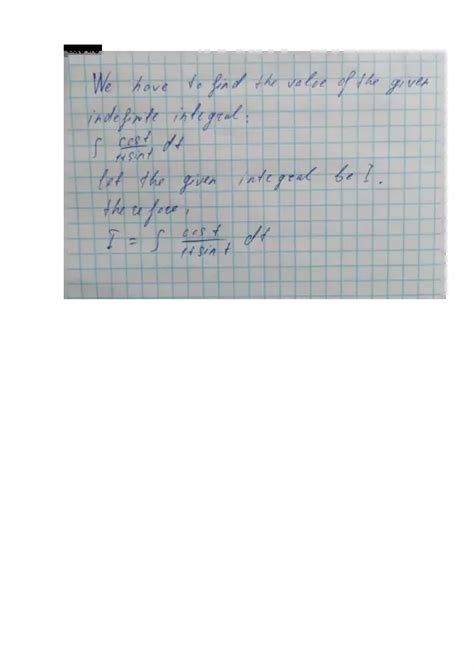 We have to find the value of the given
indefinite integral:
∫ cost/1+sint dt
let the given integral be I.
therefore,
I = ∫ cost/1+sint dt